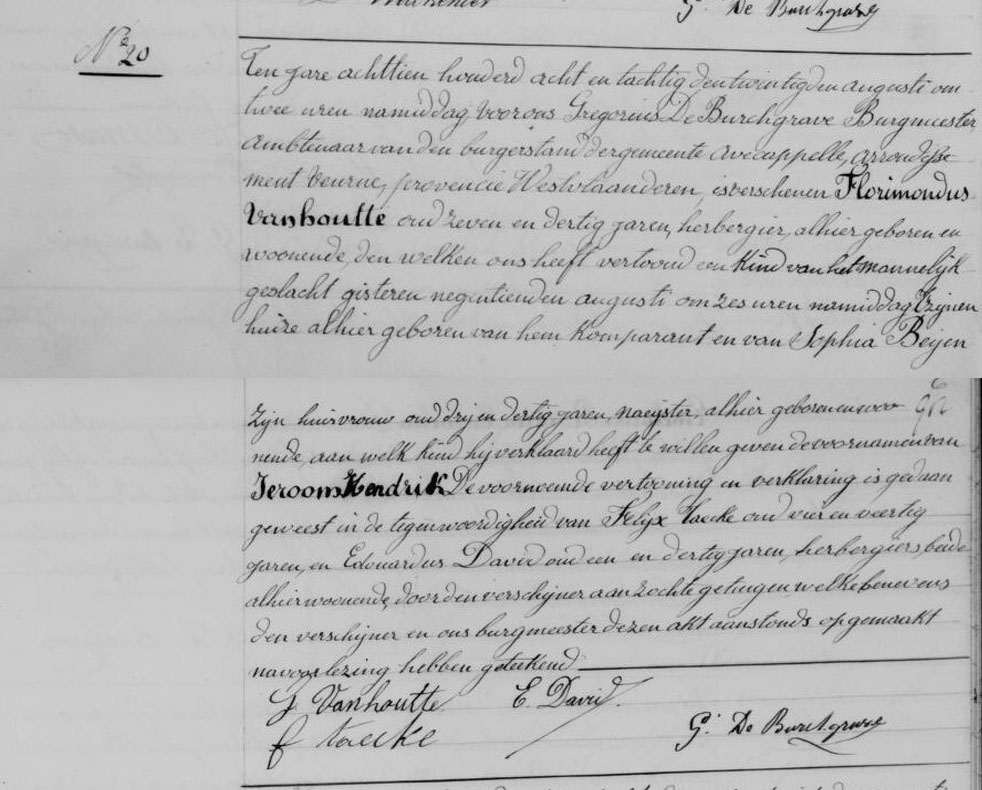 G. De Burchgrave
No 20
Ten jare achttien honderd acht en tachtig den twintigden augusti om
twee uren namiddag, voor ons Gregorius De Burchgrave Burgmeester
Ambtenaar van den burgerstand der gemeente Avecappelle, arrondisse-
ment Veurne, provencie Westvlaanderen, is verschenen Florimondus
Vanhoutte oud zeven en dertig jaren, herbergier, alhier geboren en
woonende, den welken ons heeft vertoond een Kind van het mannelijk
geslacht gisteren negentienden augusti om zes uren namiddag tzijnen
huize alhier geboren van hem Komparant en van Sophia Beijen
zijn huisvrouw oud drij en dertig jaren, naeijster, alhier geboren en woo-
nende, aan welk Kind hij verklaard heeft te willen geven de voornamen van
Jeroom Hendrik De voornoemde vertooning en verklaring is gedaan
geweest in de tegenwoordigheid van Felix Taecke oud vier en veertig
jaren, en Edouardus David oud een en dertig jaren, herbergiers, beide
alhier woonende, door den verschijner aanzochte getuigen, welke benevens
den verschijner en ons burgmeester dezen akt aanstonds opgemaakt
na voorlezing hebben geteekend
F Vanhoutte E. David
f taecke G. De Burchgrave